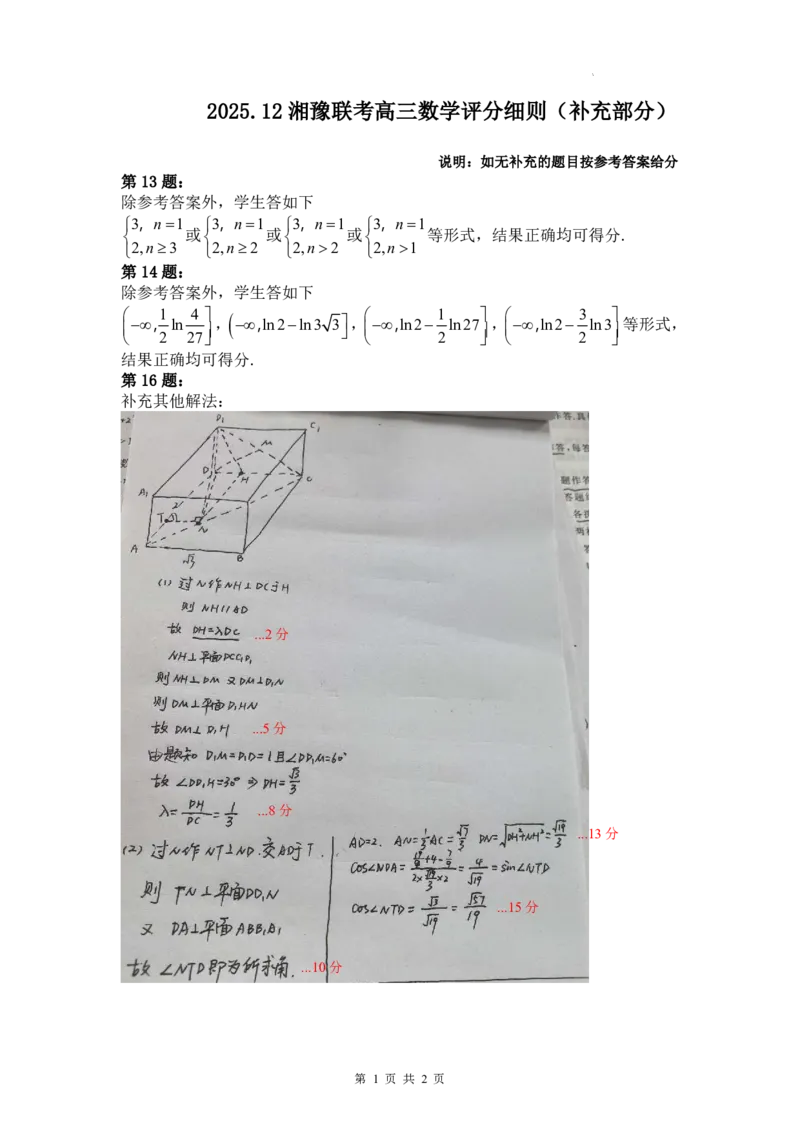 2025.12湘豫联考高三数学评分细则（补充部分）
说明：如无补充的题目按参考答案给分
第 13 题：
除参考答案外，学生答如下
{3, n=1 2,n≥3 或 {3, n=1 2,n≥2 或 {3, n=1 2,n>2 或 {3, n=1 2,n>1 等形式，结果正确均可得分.
第 14 题：
除参考答案外，学生答如下
(−∞, 1/2 ln 4/27], (−∞,ln2−ln3√3], (−∞,ln2−1/2 ln27], (−∞,ln2−3/2 ln3] 等形式，
结果正确均可得分.
第 16 题：
补充其他解法：
D₁
C₁
M
D
H
C
A₁
2
T
N
A
√3
B
(1) 过N作NH⊥DC于H
则 NH∥AD
故 DH=λDC ...2 分
NH⊥平面DCC₁D₁
则NH⊥DM 又DM⊥D₁N
则DM⊥平面D₁HN
故 DM⊥D₁H ...5 分
由题知 D₁M=D₁D=1且∠DD₁M=60°
故 ∠DD₁H=30° ⇒ DH=√3/3
λ=DH/DC=1/3 ...8 分
(2) 过N作NT⊥ND.交AD于T.
则 TN⊥平面DD₁N
又 DA⊥平面ABB₁A₁
故 ∠NTD即为所求角. ...10 分
AD=2. AN=1/3AC=√7/3 DN=√(DH²+NH²)=√19/3 ...13 分
COS∠NDA=(19/9+4−7/9)/(2×√19/3×2)=4/√19=sin∠NTD
COS∠NTD=√3/√19=√57/19 ...15 分
答题
各
第 1 页 共 2 页